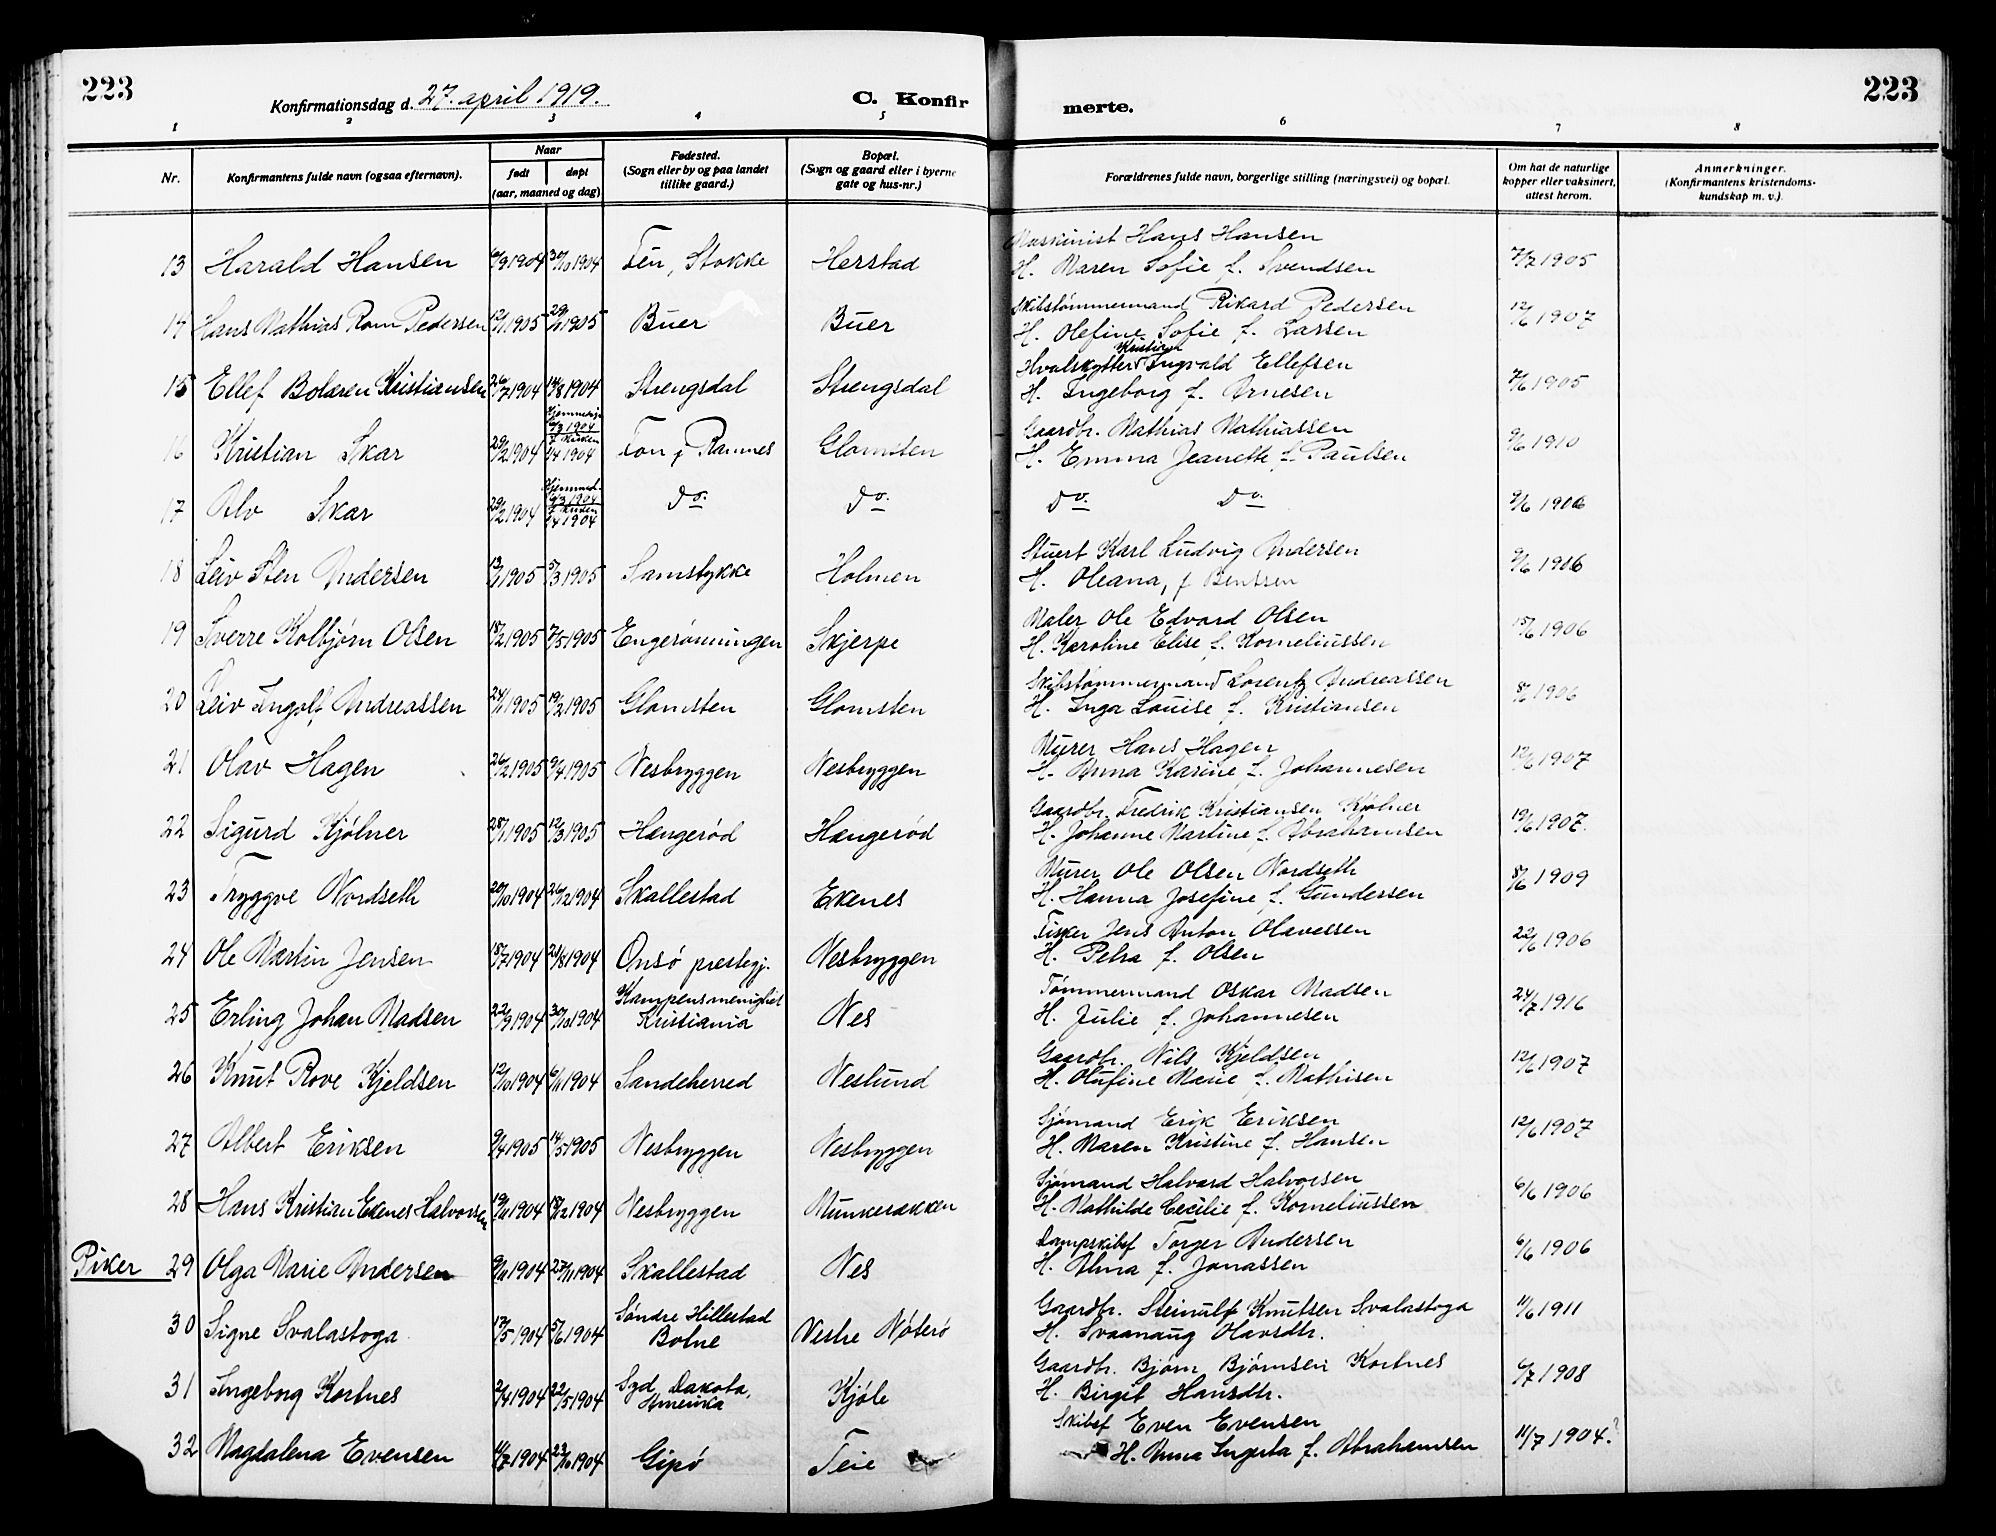 223
Konfirmationsdag d. 27. april 1919.
C. Konfirmerte.
223
1 2 3 4 5 6 7 8
Nr.
Konfirmantens fulde navn (ogsaa efternavn).
Naar
født
døpt
(aar, maaned og dag)
Fødested.
(Sogn eller by og paa landet
tillike gaard.)
Bopæl.
(Sogn og gaard eller i byerne
gate og hus-nr.)
Forældrenes fulde navn, borgerlige stilling (næringsvei) og bopæl.
Om hat de naturlige
kopper eller vaksinert,
attest herom.
Anmerkninger.
(Konfirmantens kristendoms-
kundskap m. v.).
13 Harald Hansen 6/9 1904 30/10 1904 Fén, Stokke Herstad
Maskinist Hans Hansen
H. Maren Sofie f. Svendsen 7/7 1905
14 Hans Mathias Rom Pedersen 12/1 1905 29/1 1905 Buer Buer
Skibstømmermand Rikard Pedersen
H. Olefine Sofie f. Larsen 12/6 1907
15 Ellef Bolæren Kristiansen 26/7 1904 14/8 1904 Strengsdal Strengsdal
Hvalskytter Kristian Ingvald Ellefsen
H. Ingeborg f. Arnesen 7/6 1905
16 Kristian Skar 29/2 1904 1904 i kirken 1/4 1904 Fon, Ramnes Glomsten
Gaardbr. Mathias Mathiassen
H. Emma Jeanette f. Paulsen 9/6 1910
17 Alv Skar 29/2 1904 Hjemmed. 1904 i kirken 1/4 1904 do. do.
do. do. 9/6 1906
18 Leiv Sten Andersen 13/1 1905 5/3 1905 Samstykke Holmen
Stuert Karl Ludvig Andersen
H. Oleana, f Bentsen 9/6 1906
19 Sverre Kolbjørn Olsen 18/2 1905 7/5 1905 Engerønningen Skjerpe
Maler Ole Edvard Olsen
H. Karoline Elise f. Korneliussen 15/6 1906
20 Leiv Ingolf Andreassen 24/1 1905 19/2 1905 Glomsten Glomsten
Skibstømmermand Lorentz Andreassen
H. Inga Louise f. Kristiansen 8/6 1906
21 Olav Hagen 26/2 1905 9/4 1905 Nesbryggen Nesbryggen
Murer Hans Hagen
H. Anna Karine f. Johannesen 12/6 1907
22 Sigurd Kjølner 28/1 1905 12/3 1905 Hængerød Hængerød
Gaardbr. Fredrik Kristiansen Kjølner
H. Johanne Martine f. Abrahamsen 19/6 1907.
23 Tryggve Nordseth 20/10 1904 26/12 1904 Skallestad Ekenes
Murer Ole Olsen Nordseth
H. Hanna Josefine f. Gundersen 8/6 1909
24 Ole Martin Jensen 18/7 1904 21/8 1904 Onsø prestegj. Nesbryggen
Fisker Jens Anton Olavessen
H. Petra f. Olsen 22/6 1906
25 Erling Johan Madsen 22/9 1904 30/10 1904 Kampens menighet Kristiania Nes
Tømmermand Oskar Madsen
H. Julie f. Johannesen 24/7 1916
26 Knut Rove Kjeldsen 12/10 1904 6/11 1904 Sandeherred Neslund
Gaardbr. Nils Kjeldsen
H. Olufine Marie f. Mathisen 12/6 1907
27 Albert Eriksen 9/4 1905 14/5 1905 Nesbryggen Nesbryggen
Sjømand Erik Eriksen
H. Maren Kristine f. Hansen 12/6 1907
28 Hans Kristian Ekenes Halvorsen 19/11 1904 18/12 1904 Nesbryggen Munkerækken
Sjømand Halvard Halvorsen
H. Mathilde Cecilie f. Korneliussen 6/6 1906
Piker 29 Olga Marie Andersen 9/11 1904 27/11 1904 Skallestad Nes
Dampskibsf Torger Andersen
H. Alma f. Jonassen 6/6 1906
30 Signe Svalastoga 17/5 1904 5/6 1904 Søndre Hillestad Botne Vestre Nøterø
Gaardbr. Steinulf Knutsen Svalastoga
H. Svaanaug Olavsdtr. 11/6 1911
31 Ingeborg Kortnes 2/4 1904 22/5 1904 Syd Dakota, Amerika Kjøle
Gaardbr. Bjørn Bjørnsen Kortnes
H. Birgit Hansdtr. 6/7 1908
32 Magdalena Evensen 11/7 1904 23/10 1904 Gipø Teie
Skibsf Even Evensen
H. Anna Ingerta f. Abrahamsen 11/7 1904?